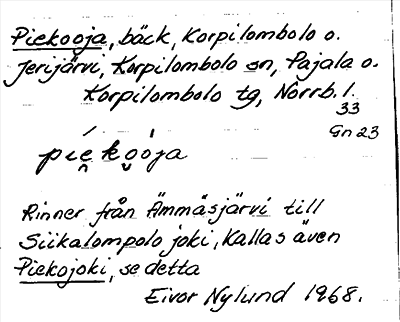 Piekooja, bäck, Korpilombolo o.
Jerijärvi, Korpilombolo sn, Pajala o.
Korpilombolo tg, Norrb. l.
33
Gn 23
píe̯ ko̯òja
Rinner från Ämmäsjärvi till
Siikalompolo joki, Kallas även
Piekojoki, se detta
Eivor Nylund 1968.